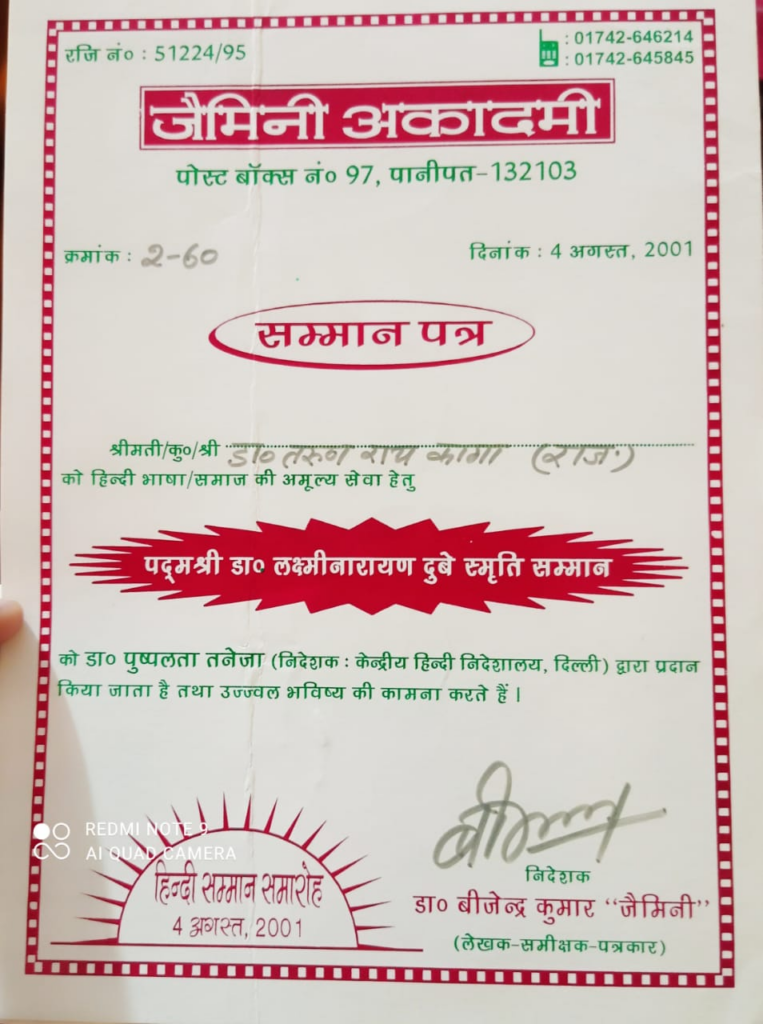 रजि नं० : 51224/95
: 01742-646214
: 01742-645845
जैमिनी अकादमी
पोस्ट बॉक्स नं० 97, पानीपत-132103
क्रमांक : 2-60
दिनांक : 4 अगस्त, 2001
सम्मान पत्र
श्रीमती/कु०/श्री डा० तरुण राय कागा (राज.)
को हिन्दी भाषा/समाज की अमूल्य सेवा हेतु
पद्मश्री डा० लक्ष्मीनारायण दुबे स्मृति सम्मान
को डा० पुष्पलता तनेजा (निदेशक : केन्द्रीय हिन्दी निदेशालय, दिल्ली) द्वारा प्रदान
किया जाता है तथा उज्ज्वल भविष्य की कामना करते हैं ।
निदेशक
डा० बीजेन्द्र कुमार “जैमिनी”
(लेखक-समीक्षक-पत्रकार)
हिन्दी सम्मान समारोह
4 अगस्त, 2001
REDMI NOTE 9
AI QUAD CAMERA